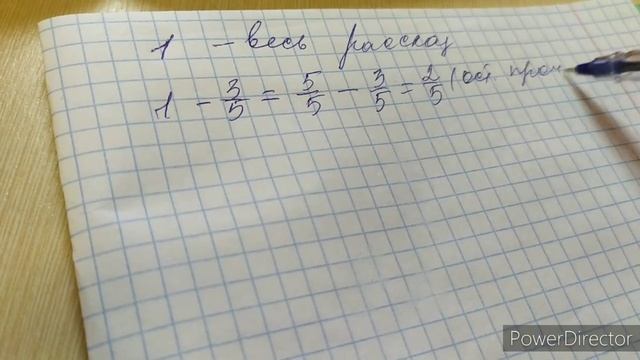 1 - весь рассказ
1 - 3/5 = 5/5 - 3/5 = 2/5 (ост. проч
PowerDirector